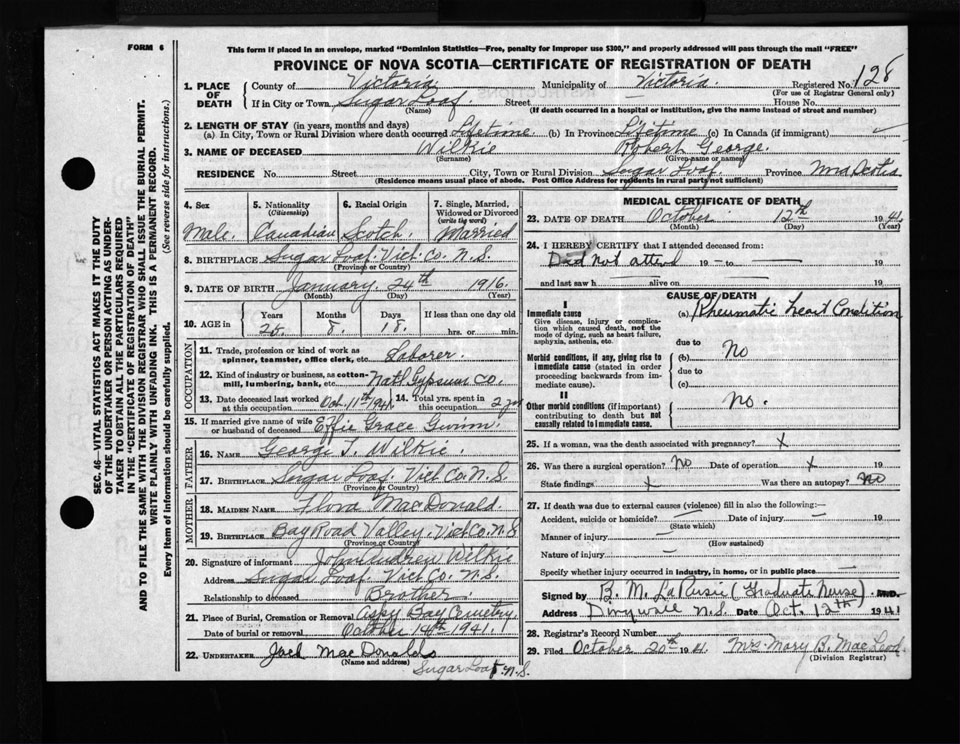 FORM 6
This form if placed in an envelope, marked "Dominion Statistics—Free, penalty for improper use $300," and properly addressed will pass through the mail "FREE"
PROVINCE OF NOVA SCOTIA—CERTIFICATE OF REGISTRATION OF DEATH
SEC. 46—VITAL STATISTICS ACT MAKES IT THE DUTY
OF THE UNDERTAKER OR PERSON ACTING AS UNDER-
TAKER TO OBTAIN ALL THE PARTICULARS REQUIRED
IN THE "CERTIFICATE OF REGISTRATION OF DEATH"
AND TO FILE THE SAME WITH THE DIVISION REGISTRAR WHO SHALL ISSUE THE BURIAL PERMIT.
WRITE PLAINLY WITH UNFADING INK. THIS IS A PERMANENT RECORD.
Every item of Information should be carefully supplied. (See reverse side for instructions.)
1. PLACE OF DEATH County of Victoria Municipality of Victoria. Registered No. 128
(For use of Registrar General only)
If in City or Town Sugar Loaf. Street House No.
(Name) (If death occurred in a hospital or institution, give the name instead of street and number)
2. LENGTH OF STAY (in years, months and days)
(a) In City, Town or Rural Division where death occurred Lifetime (b) In Province Lifetime (c) In Canada (if immigrant)
3. NAME OF DECEASED Wilkie Robert George.
(Surname) (Given name or names)
RESIDENCE No. Street City, Town or Rural Division Sugar Loaf. Province Nova Scotia
(Residence means usual place of abode. Post Office Address for residents in rural parts not sufficient)
4. Sex 5. Nationality (Citizenship) 6. Racial Origin 7. Single, Married, Widowed or Divorced (write the word)
Male. Canadian Scotch. Married
8. BIRTHPLACE Sugar Loaf. Vict. Co. N.S.
(Province or Country)
9. DATE OF BIRTH January 24th 1916.
(Month) (Day) (Year)
10. AGE in Years Months Days If less than one day old
25. 8. 18. hrs. or min.
OCCUPATION
11. Trade, profession or kind of work as spinner, teamster, office clerk, etc. Laborer.
12. Kind of industry or business, as cotton-mill, lumbering, bank, etc. Nat'l Gypsum Co.
13. Date deceased last worked at this occupation Oct. 11th 1941 14. Total yrs. spent in this occupation 2 yrs
15. If married give name of wife or husband of deceased Effie Grace Gwinn.
FATHER
16. NAME George T. Wilkie.
17. BIRTHPLACE Sugar Loaf. Vict Co. N.S.
(Province or Country)
MOTHER
18. MAIDEN NAME Flora MacDonald.
19. BIRTHPLACE Bay Road Valley. Vict Co. N.S
(Province or Country)
20. Signature of informant John Andrew Wilkie
Address Sugar Loaf. Vict Co. N.S.
Relationship to deceased Brother.
21. Place of Burial, Cremation or Removal Aspy Bay Cemetry.
Date of burial or removal October 14th 1941.
22. UNDERTAKER Jack MacDonald
(Name and address) Sugar Loaf. N.S.
MEDICAL CERTIFICATE OF DEATH
23. DATE OF DEATH October 12th 1941.
(Month) (Day) (Year)
24. I HEREBY CERTIFY that I attended deceased from:
Did not attend 19 — to — 19
and last saw h alive on 19
CAUSE OF DEATH
I
Immediate cause
Give disease, injury or complication which caused death, not the mode of dying, such as heart failure, asphyxia, asthenia, etc.
(a) Rheumatic heart Condition
due to
Morbid conditions, if any, giving rise to immediate cause (stated in order proceeding backwards from immediate cause).
(b) No
due to
(c)
II
Other morbid conditions (if important) contributing to death but not causally related to immediate cause.
no.
25. If a woman, was the death associated with pregnancy? x
26. Was there a surgical operation? No Date of operation x 19
State findings x Was there an autopsy? No
27. If death was due to external causes (violence) fill in also the following:—
Accident, suicide or homicide? — Date of injury — 19
(State which)
Manner of injury —
(How sustained)
Nature of injury —
Specify whether injury occurred in industry, in home, or in public place —
Signed by B. M. (Graduate Nurse) M.D.
Address Dingwall N.S. Date Oct. 12th 1941
28. Registrar's Record Number
29. Filed October 20th 1941. Mrs. Mary B. MacLeod.
(Division Registrar)